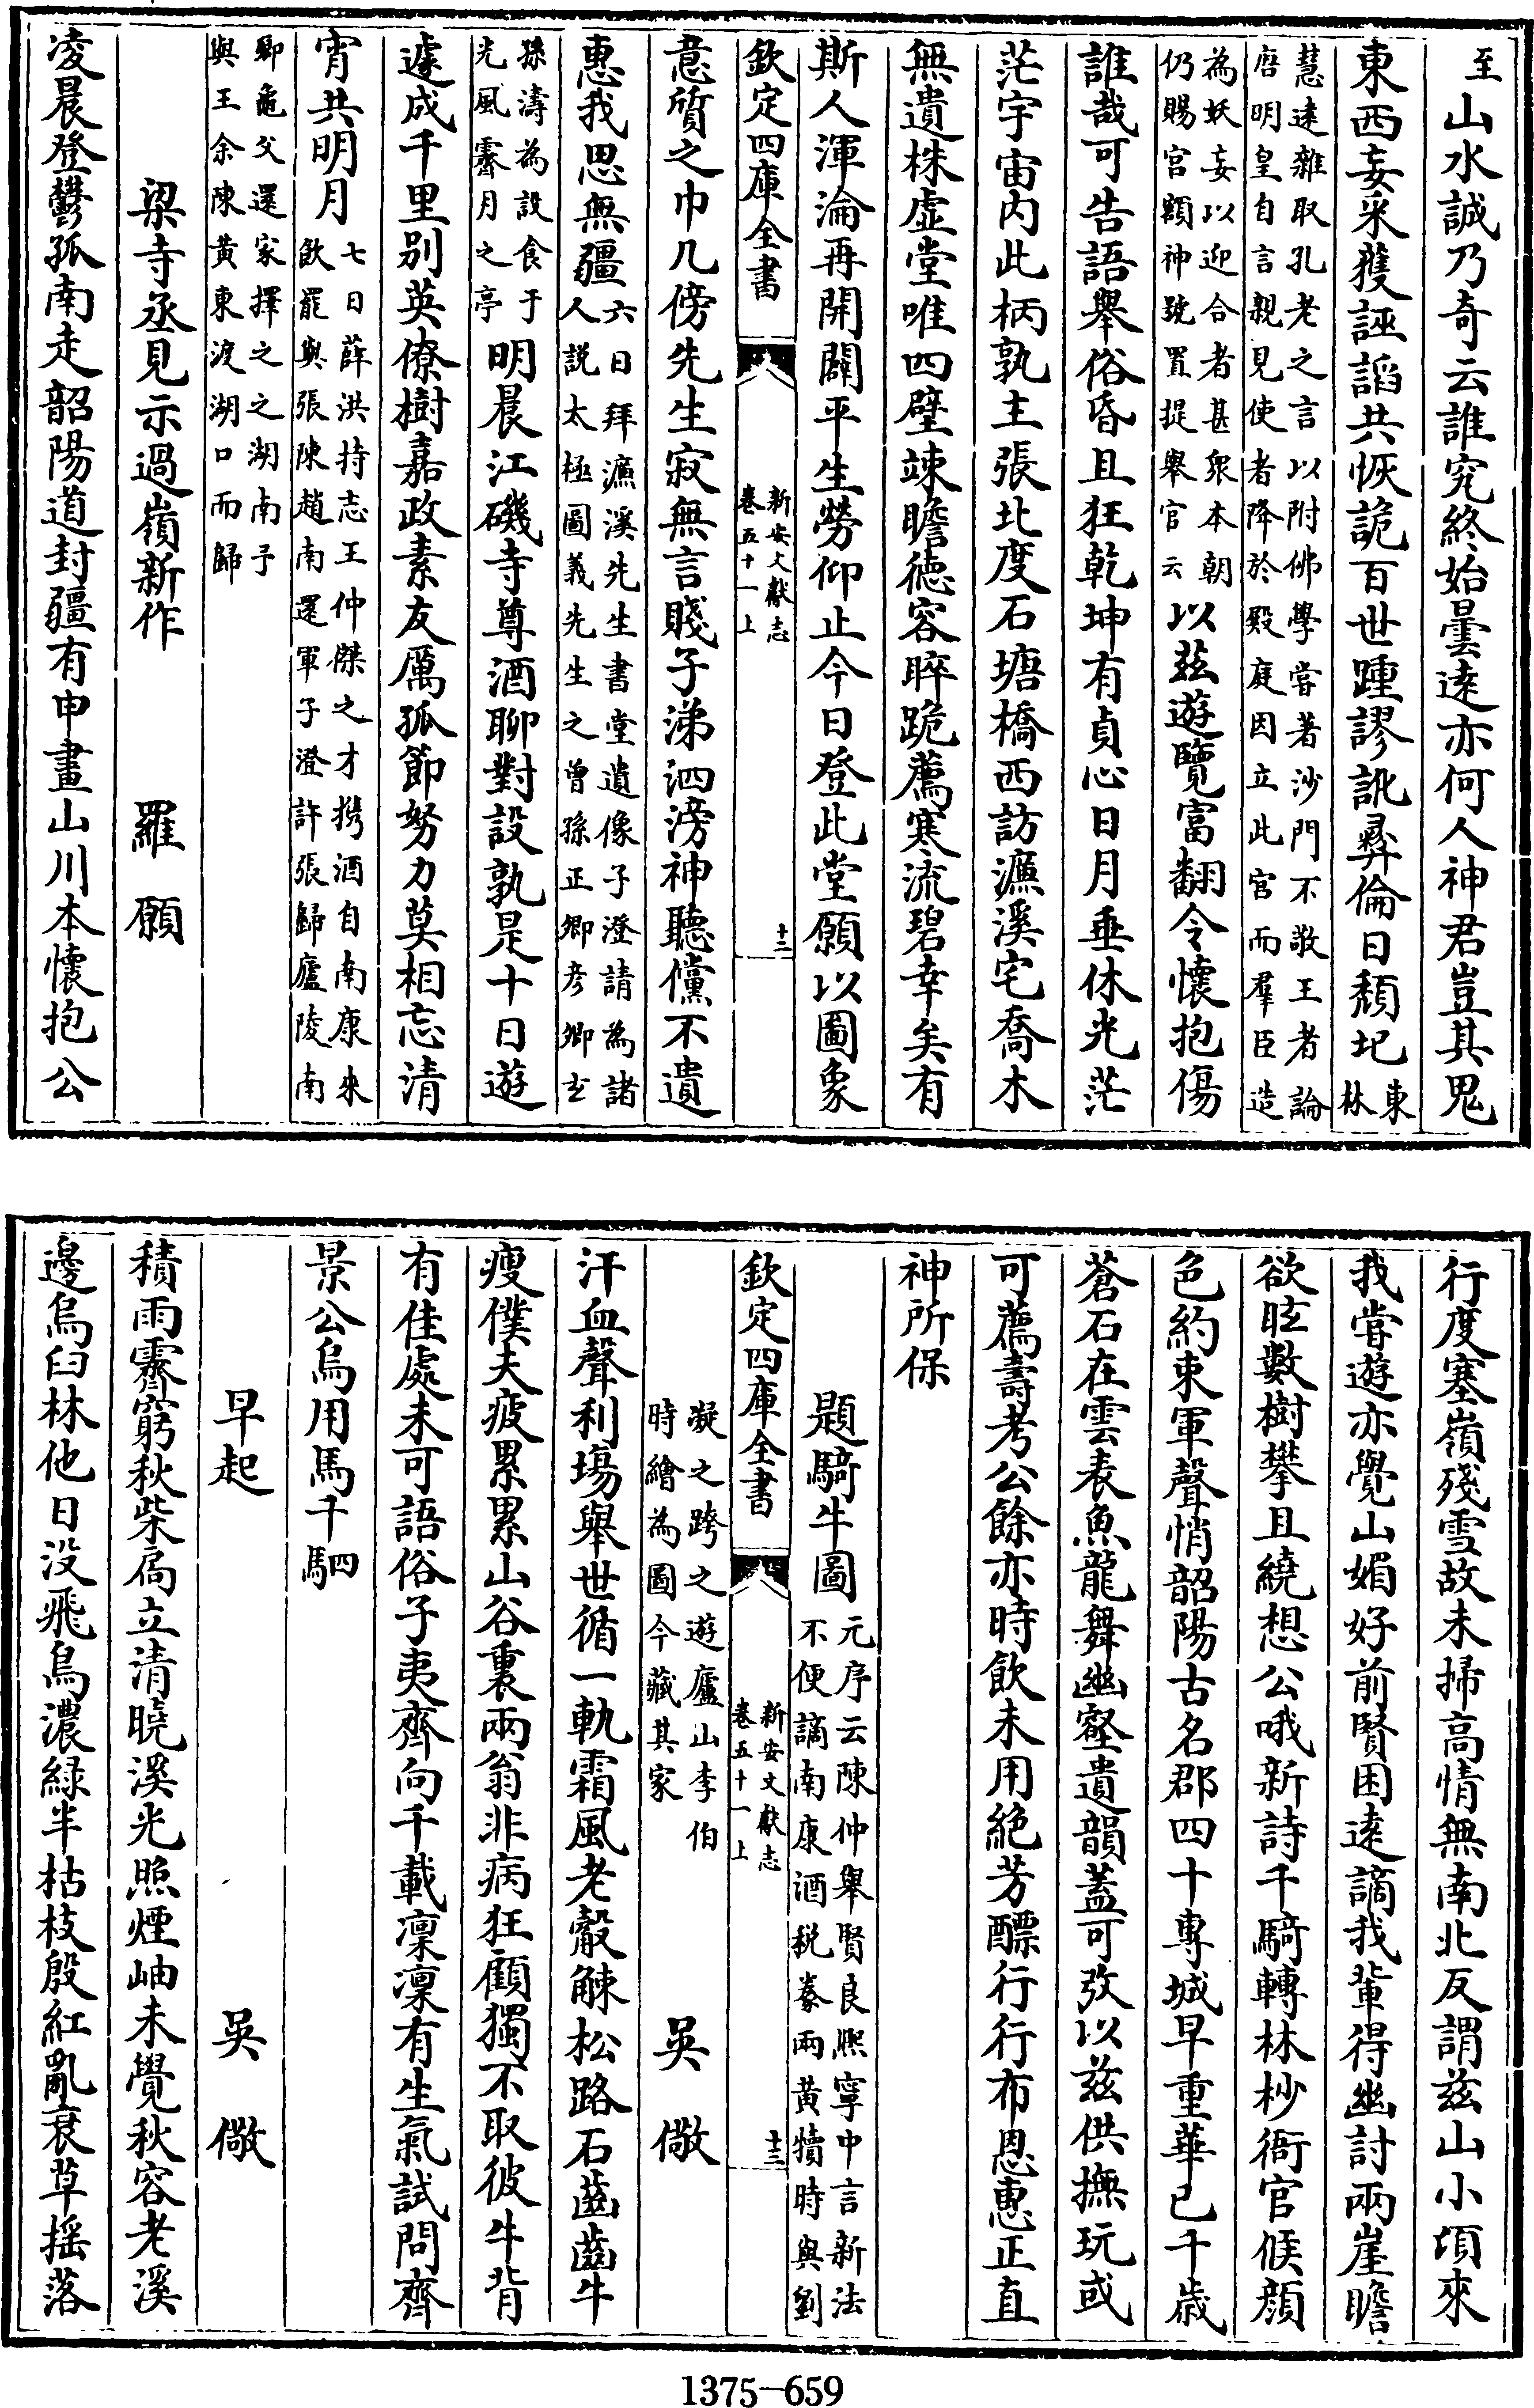 至山水誠乃奇云誰究終始曇遠亦何人神君豈其鬼
東西妄采獲誣謟共恢詭百世踵謬訛彞倫日頹圮東林
慧遠雜取孔老之言以附佛學嘗著沙門不敬王者論
唐明皇自言親見使者降於殿庭因立此官而羣臣造
為妖妄以迎合者甚衆本朝
仍賜宫額神號置提舉官云以兹遊覽富翻令懷抱傷
誰哉可告語舉俗昏且狂乾坤有貞心日月垂休光茫
茫宇宙内此柄孰主張北度石塘橋西訪濂溪宅喬木
無遺株虚堂唯四壁竦瞻德容睟跪薦寒流碧幸矣有
斯人渾淪再開闢平生勞仰止今日登此堂願以圖象
欽定四庫全書
新安文獻志
卷五十一上
十二
意質之巾几傍先生寂無言賤子涕泗滂神聽儻不遺
惠我思無疆六日拜濂溪先生書堂遺像子澄請為諸
人説太極圖義先生之曾孫正卿彦卿𤣥
孫濤為設食于
光風霽月之亭明晨江磯寺尊酒聊對設孰是十日遊
遽成千里别英僚樹嘉政素友厲孤節努力莫相忘清
宵共明月七日薛洪持志王仲傑之才携酒自南康來
飲罷與張陳趙南還軍子澄許張歸廬陵南
卿龜父還家擇之之湖南予
與王余陳黄東渡湖口而歸
梁寺丞見示過嶺新作　羅願
凌晨登鬱孤南走韶陽道封疆有申畫山川本懷抱公
行度塞嶺殘雪故未掃高情無南北反謂兹山小頃來
我嘗遊亦覺山媚好前賢困遠謫我輩得幽討兩崖瞻
欲眩數樹攀且繞想公哦新詩千騎轉林杪衙官候顔
色約束軍聲悄韶陽古名郡四十專城早重華已千歳
蒼石在雲表魚龍舞幽壑遺韻蓋可攷以兹供撫玩或
可薦壽考公餘亦時飲未用絶芳醥行行布恩惠正直
神所保
題騎牛圖元序云陳仲舉賢良熈寧中言新法
不便謫南康酒税豢兩黄犢時與劉
欽定四庫全書
新安文獻志
卷五十一上
十三
凝之跨之遊廬山李伯
時繪為圖今藏其家　吳儆
汗血聲利塲舉世循一軌霜風老觳觫松路石齒齒牛
瘦僕夫疲累累山谷裏兩翁非病狂顧獨不取彼牛背
有佳處未可語俗子夷齊向千載凜凜有生氣試問齊
景公烏用馬千駟
早起　吳儆
積雨霽窮秋柴扃立清曉溪光照煙岫未覺秋容老溪
邊烏臼林他日没飛鳥濃緑半枯枝殷紅亂衰草摇落
1375-659